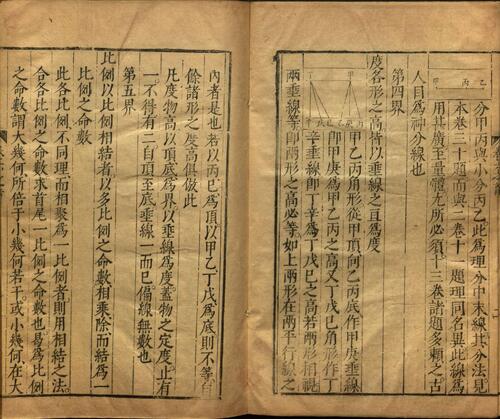 丙 乙 甲
分甲丙與小分丙乙此為理分中末線其分法見
本卷三十題而與二卷十一題理同名異此線為
用甚廣至量體尤所必須十三卷諸題多賴之古
人目為神分線也
第四界
度各形之高皆以垂線之亘為度
甲乙丙角形從甲頂向乙丙底作甲庚垂線
即甲庚為甲乙丙之高又丁戊己角形作丁
辛垂線即丁辛為丁戊己之高若兩形相視
兩垂線等即兩形之高必等如上兩形在兩平行線之
內者是也若以丙己為頂以甲乙丁戊為底則不等自
餘諸形之度高俱倣此
凡度物高以頂底為界以垂線為度蓋物之定度止有
一不得有二自頂至底垂線一而已偏線無數也
第五界
比例以比例相結者以多比例之命數相乘除而結為一
比例之命數
此各比例不同理而相聚為一比例者則用相結之法
合各比例之命數求首尾一比例之命數也曷為比例
之命數謂大幾何所倍于小幾何若干或小幾何在大